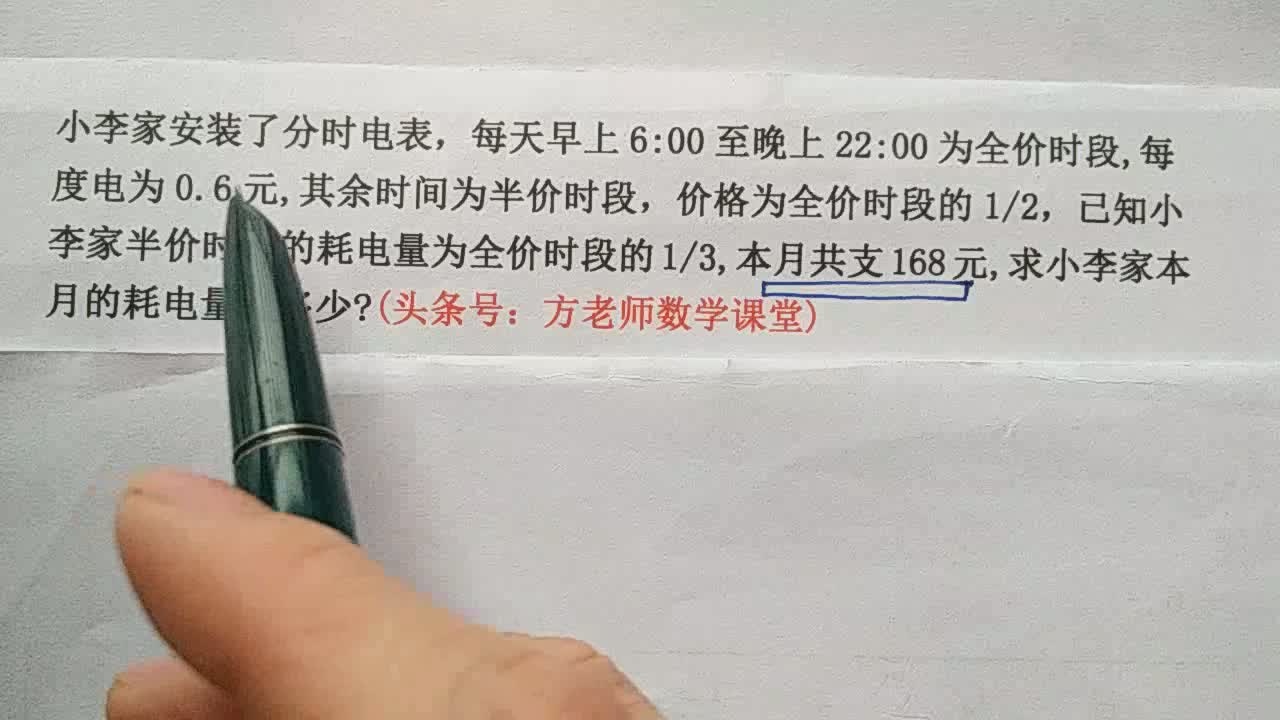 小李家安装了分时电表，每天早上6:00至晚上22:00为全价时段,每
度电为0.6元,其余时间为半价时段，价格为全价时段的1/2，已知小
李家半价时的耗电量为全价时段的1/3,本月共支168元,求小李家本
月的耗电量少?(头条号：方老师数学课堂)